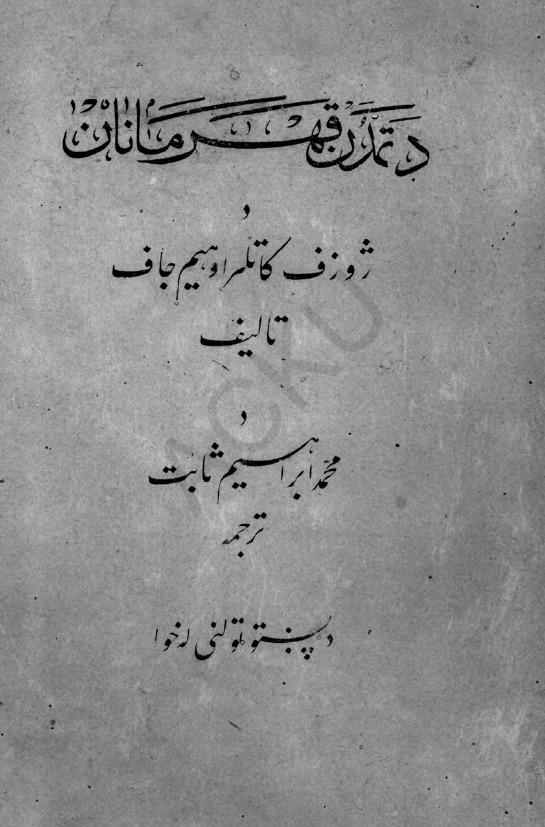 د تمدّن قهرمانان
د
ژوزف کاتلر او هیم جاف
تالیف
د
محمّد ابراهیم ثابت
ترجمه
د پښتو ټولنی له خوا
ACKU